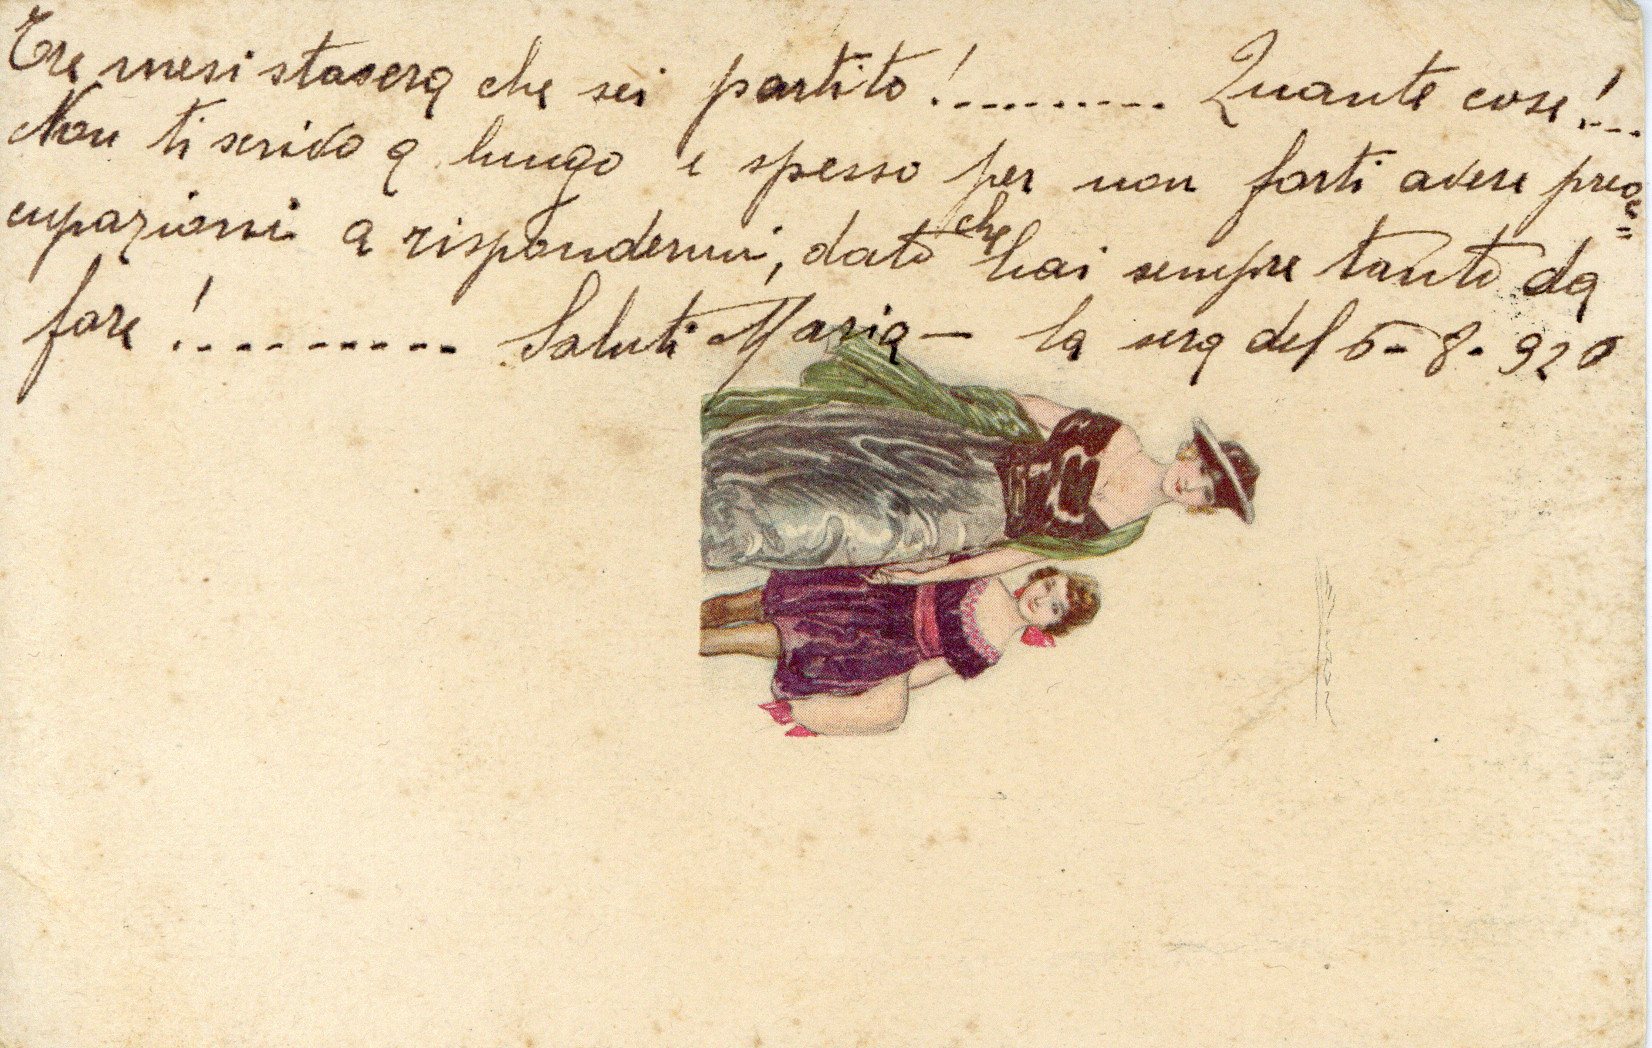 Tre mesi stasera che sei partito!.......... Quante cose!...
Non ti scrivo a lungo e spesso per non farti avere preoc=
cupazioni a rispondermi, dato che hai sempre tanto da
fare!......... Saluti Maria — la sera del 6-8-920